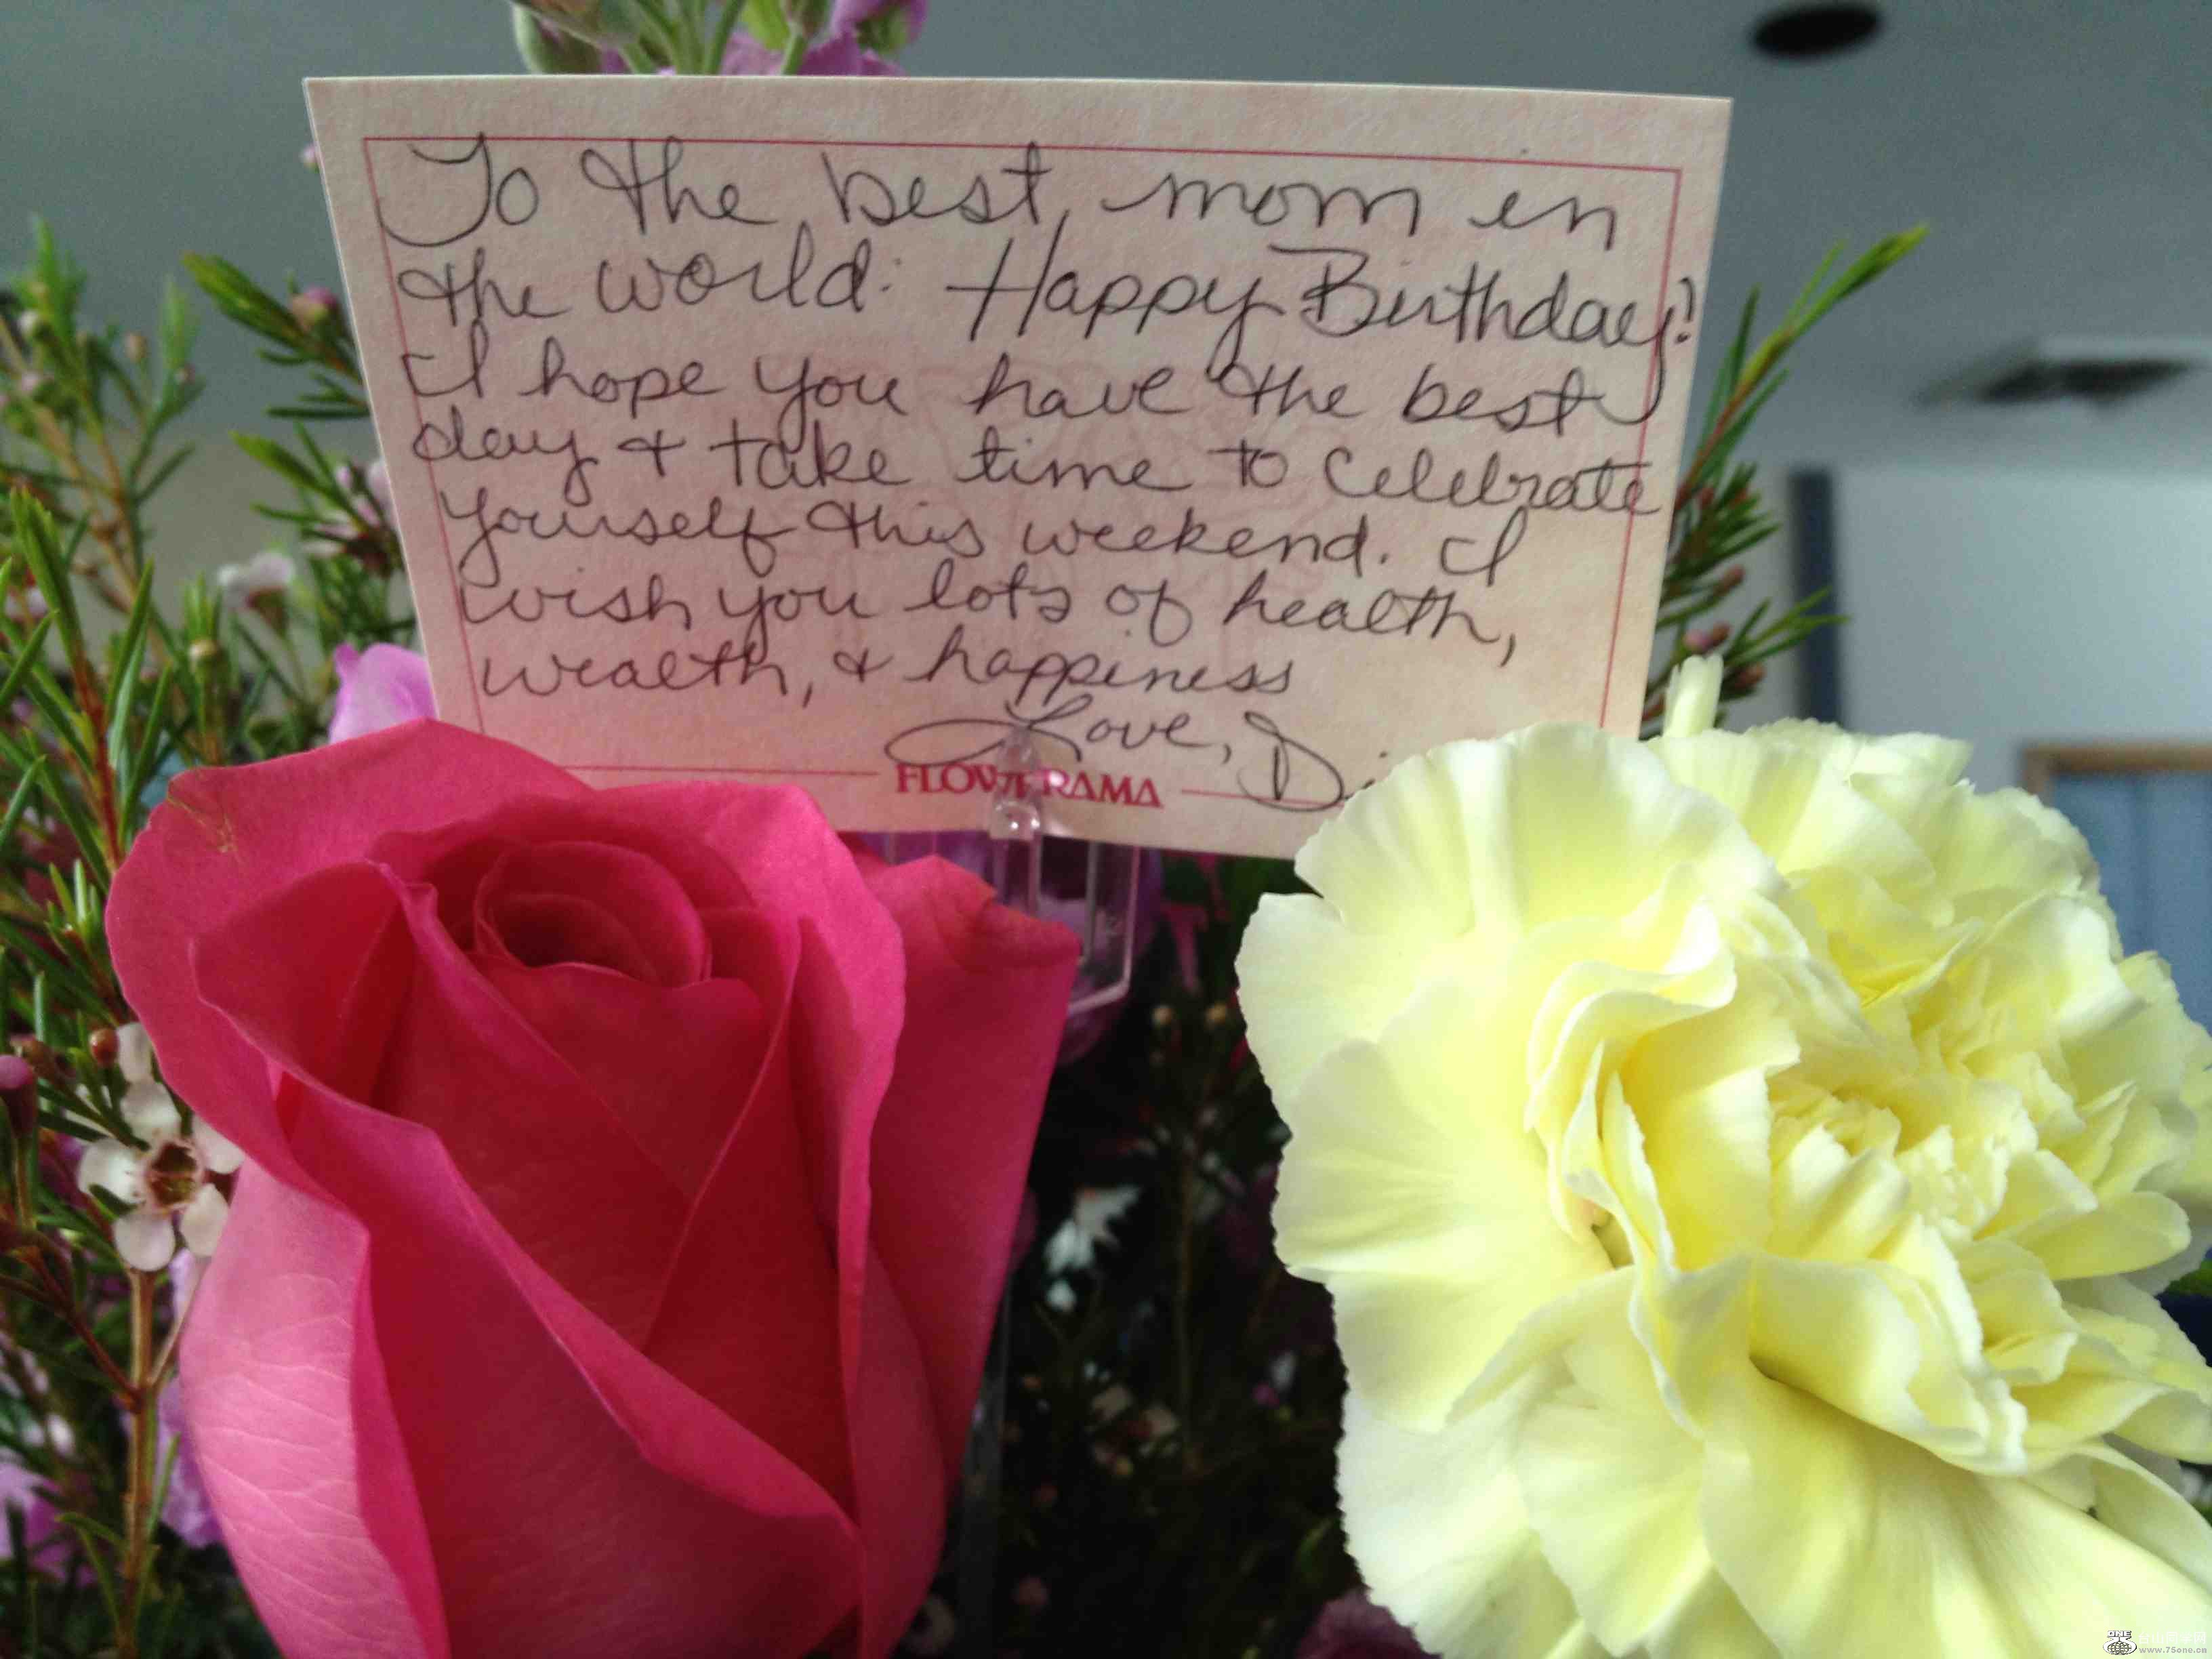 To the best mom in
the world: Happy Birthday!
I hope you have the best
day & take time to celebrate
yourself this weekend. I
wish you lots of health,
wealth, & happiness
Love,
FLOWERAMA
ONE
www.75one.cn